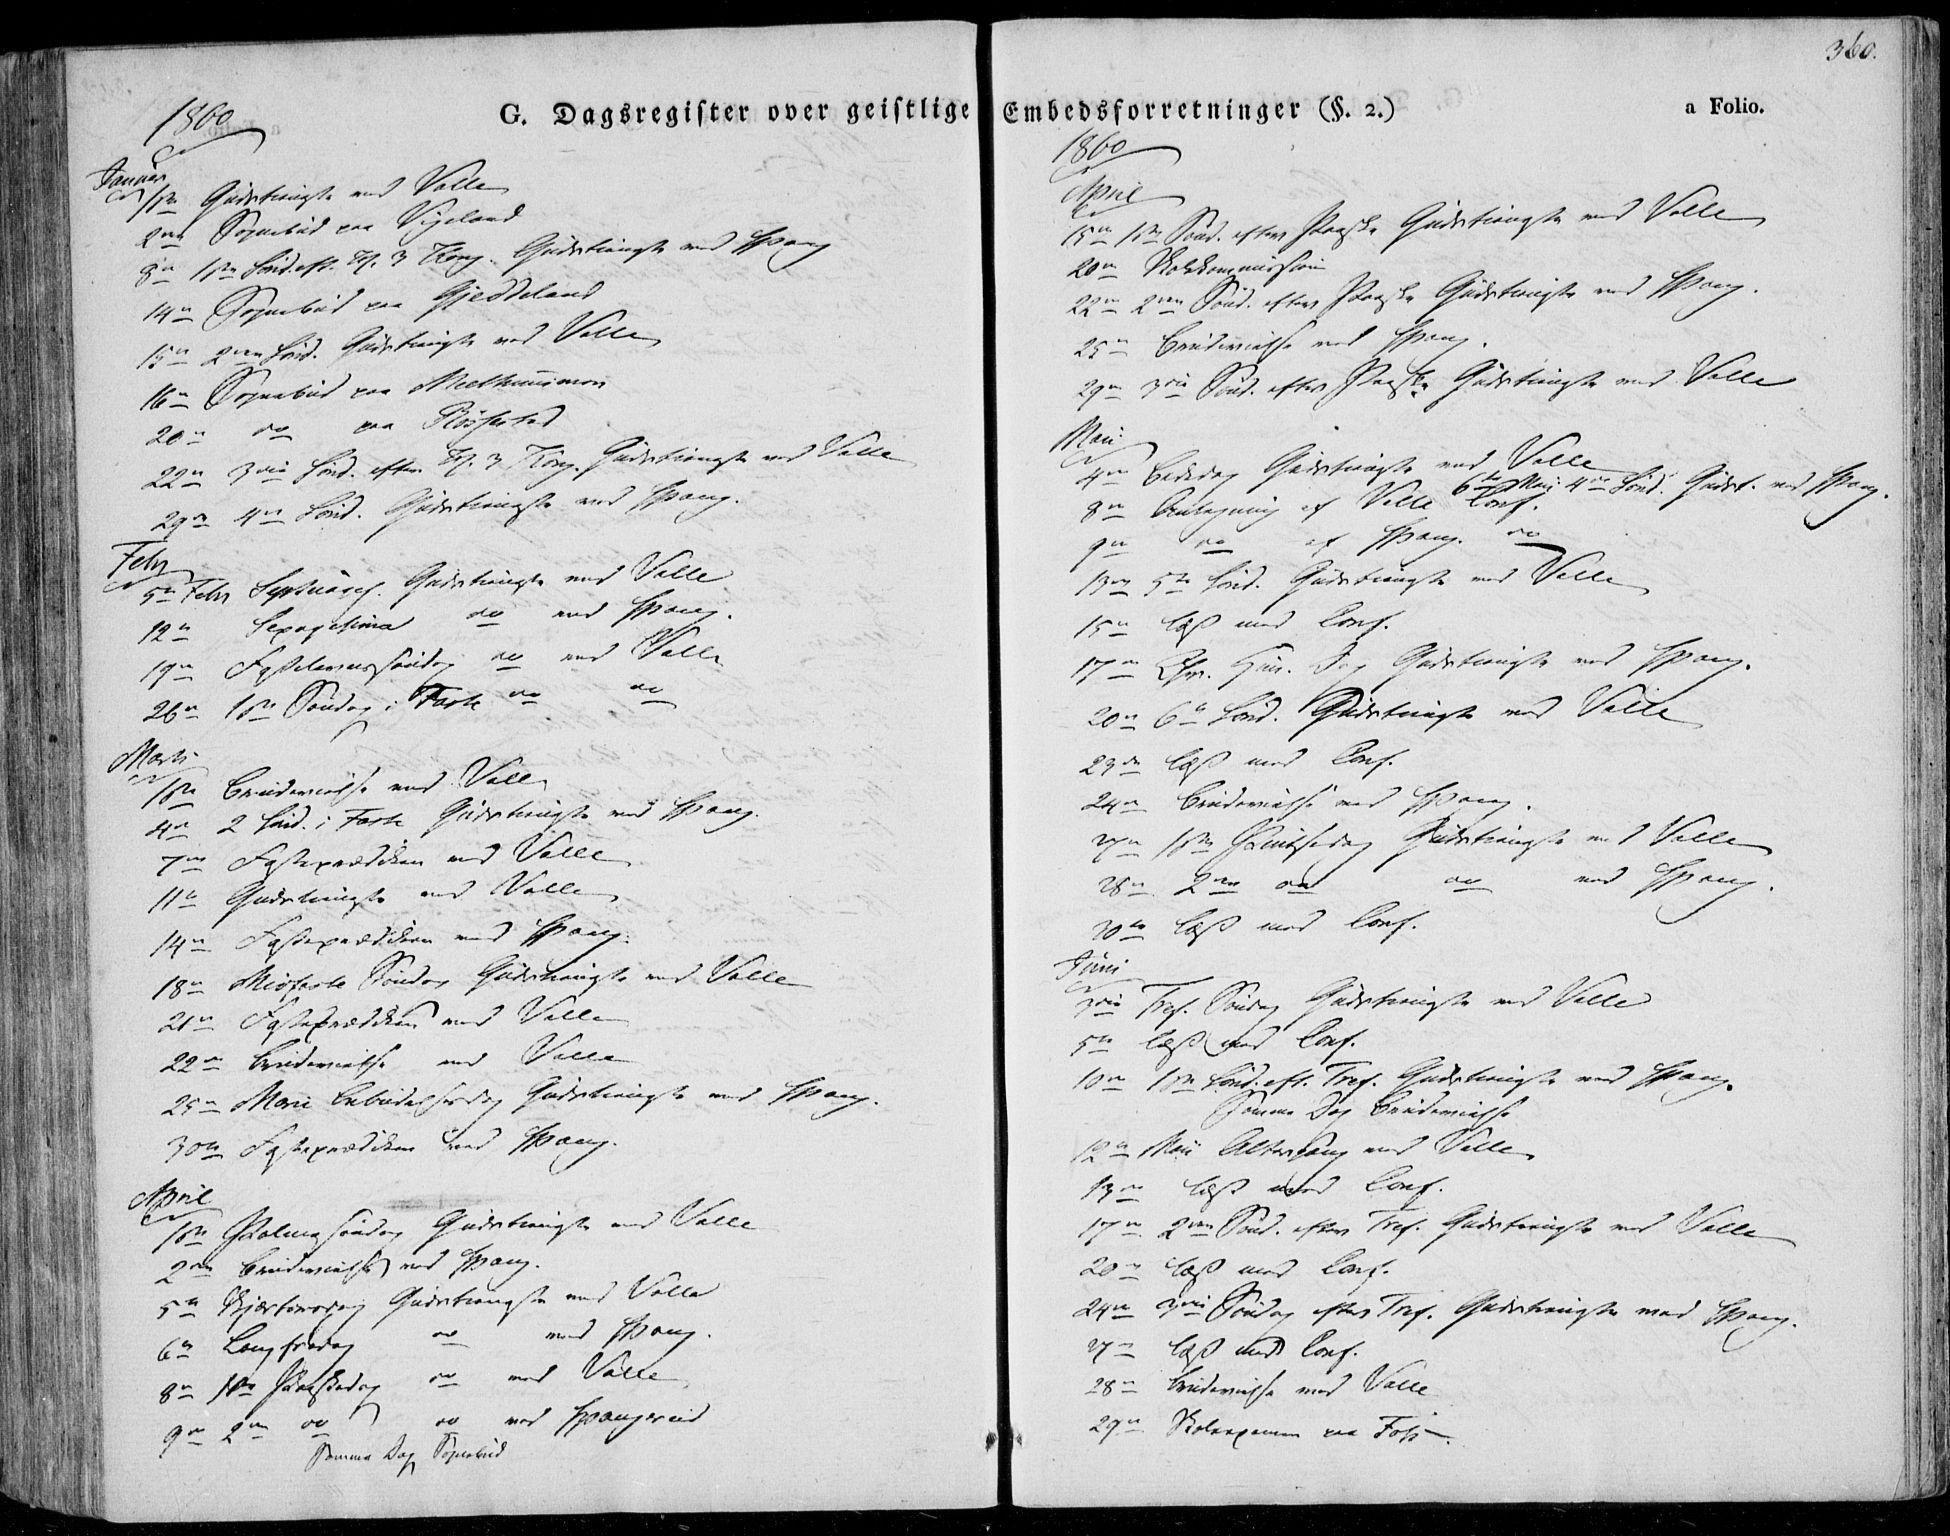 360.
G. Dagsregister over geistlige Embedsforretninger (§. 2.)
a Folio.
1860
Januar
1ste Gudstieneste ved Valle
2den Sognebud paa Vigeland
8de 1ste Sønd. eft. H. 3 Kong. Gudstieneste ved Spang
14de Sognebud paa Gjeddeland
15de 2den Sønd. Gudstieneste ved Valle
16de Sognebud paa
20de do paa
22de 3die Sønd. efter H. 3 Kong. Gudstieneste ved Valle
29de 4de Sønd. Gudstieneste ved Spang.
Febr
5te Febr Septuages. Gudstieneste ved Valle
12te Sexagesima do ved Spang.
19de Fastelavnssøndag do ved Valle
26de 1ste Søndag i Faste do do
Marts
1ste Brudevielse ved Valle
4de 2 Sønd. i Faste Gudstieneste ved Spang.
7de Fasteprædiken ved Valle
11te Gudstieneste ved Valle
14de Fasteprædiken ved Spang.
18de Midfaste Søndag Gudstieneste ved Valle
21de Fasteprædiken ved Valle
22de Brudevielse ved Valle
25de Marie Bebudelsesdag Gudstieneste ved Spang.
30te Fasteprædiken ved Spang.
April
1ste Palmesøndag Gudstieneste ved Valle
2den Brudevielse ved Spang.
5te Skjærtorsdag Gudstieneste ved Valle
6te Langfredag do ved Spang.
8de 1ste Paaskedag do ved Valle
9de 2den do do ved Spangereid
Samme Dag Sognebud
1860
April
15de 1ste Sønd. efter Paaske Gudstieneste ved Valle
20de Skolekommission
22de 2den Sønd. efter Paaske Gudstieneste ved Spang.
25de Brudevielse ved Spang.
29de 3die Sønd. efter Paaske Gudstieneste ved Valle
Mai
4de Bededag Gudstieneste ved Valle
6te Mai 4de Sønd. Gudst. ved Spang.
8de Antegning af Valle Conf.
9de do af Spang. do
13de 5te Sønd. Gudstieneste ved Valle
15de læst med Conf.
17de Chr. Him. Dag Gudstieneste ved Spang.
20de 6te Sønd. Gudstieneste ved Valle
23de læst med Conf.
24de Brudevielse ved Spang.
27de 1ste Pintsedag Gudstieneste ved Valle
28de 2den do do ved Spang.
30te læst med Conf.
Juni
3die Tref. Søndag Gudstieneste ved Valle
5te læst med Conf.
10de 1ste Sønd. eft. Tref. Gudstieneste ved Spang.
Samme Dag Brudevielse
12te Mai Altergang ved Valle
13de læst med Conf.
17de 2den Sønd. efter Tref. Gudstieneste ved Valle
20de læst med Conf.
24de 3die Søndag efter Tref. Gudstieneste ved Spang.
27de læst med Conf.
28de Brudevielse ved Valle
29de Skoleexamen paa Foss.